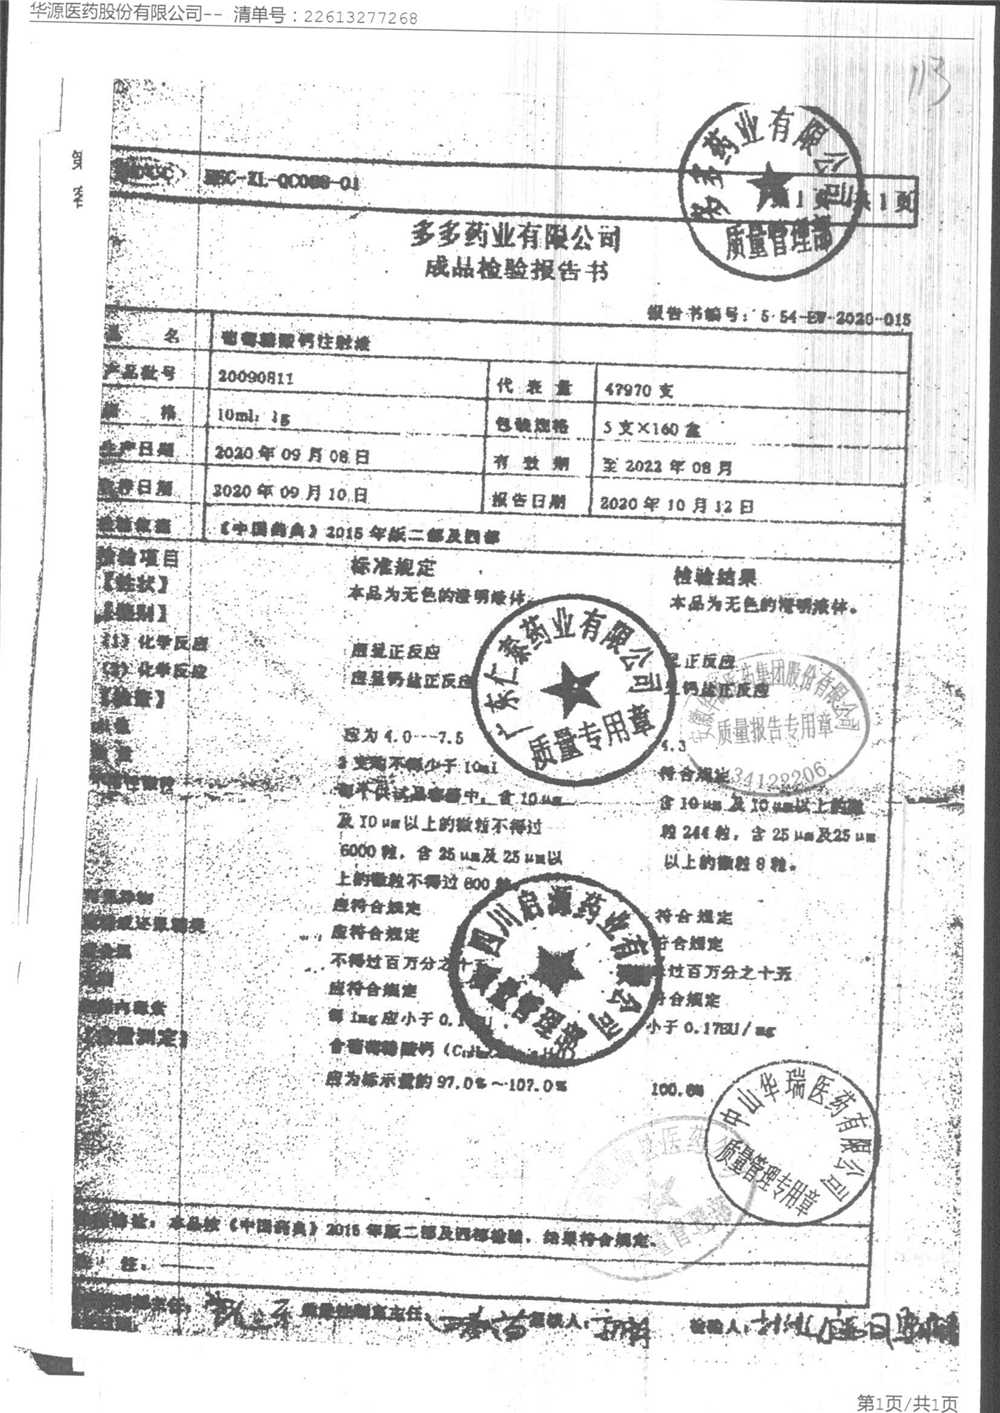 华源医药股份有限公司-- 清单号：22613277268
113
第
客
第1页 共1页
多多药业有限公司
质量管理部
多多药业有限公司
成品检验报告书
报告书编号：5·54-EW-2020-015
品 名 葡萄糖酸钙注射液
产品批号 20090811 代表量 47970 支
规 格 10ml：1g 包装规格 5 支×160 盒
生产日期 2020 年 09 月 08 日 有效期 至 2022 年 08 月
取样日期 2020 年 09 月 10 日 报告日期 2020 年 10 月 12 日
检验依据 《中国药典》2015 年版二部及四部
检验项目 标准规定 检验结果
【性状】 本品为无色的澄明液体 本品为无色的澄明液体。
【鉴别】
(1) 化学反应 应呈正反应 呈正反应
(2) 化学反应 应呈钙盐正反应 呈钙盐正反应
【检查】
应为 4.0---7.5 4.3
3 支均不得少于 10ml 符合规定
每个供试品容器中，含 10μm 含 10μm 及 10μm以上的微
及 10μm以上的微粒不得过 粒 244 粒，含 25μm及25μm
6000 粒，含 25μm及 25μm以 以上的微粒 8 粒。
上的微粒不得过 600 粒
应符合规定 符合规定
应符合规定 符合规定
不得过百万分之十五 不得过百万分之十五
应符合规定 符合规定
每 1mg 应小于 0.1 小于 0.17EU/mg
【含量测定】 含葡萄糖酸钙
应为标示量的 97.0%～107.0% 100.6%
广东仁泰药业有限公司
质量专用章
医药集团股份有限公司
质量报告专用章
34122206
四川启源药业有限公司
质量管理部
中山华瑞医药有限公司
质量管理专用章
本品按《中国药典》2015 年版二部及四部检验，结果符合规定。
备 注：——
质量控制室主任： 复核人： 检验人：
第1页/共1页